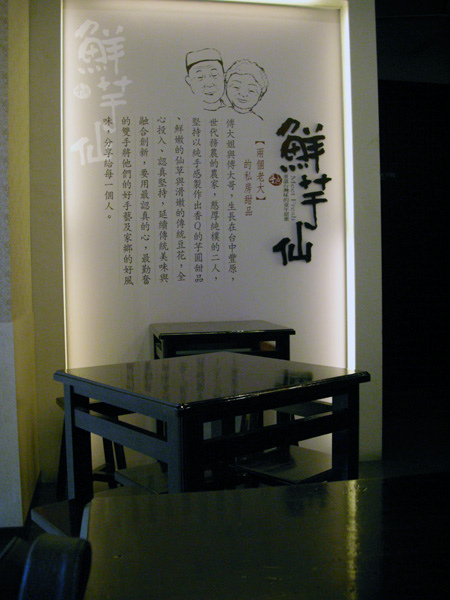 鮮芋仙
Meet Fresh
【兩個老大】
的私房甜品
傅大姐與傅大哥，生長在台中豐原，
世代務農的農家，憨厚純樸的二人，
堅持以純手感製作出香Q的芋圓甜品
、鮮嫩的仙草與滑嫩的傳統豆花，全
心投入、認真堅持，延續傳統美味與
融合創新，要用最認真的心，最勤奮
的雙手將他們的好手藝及家鄉的好風
味，分享給每一個人。
鮮芋仙